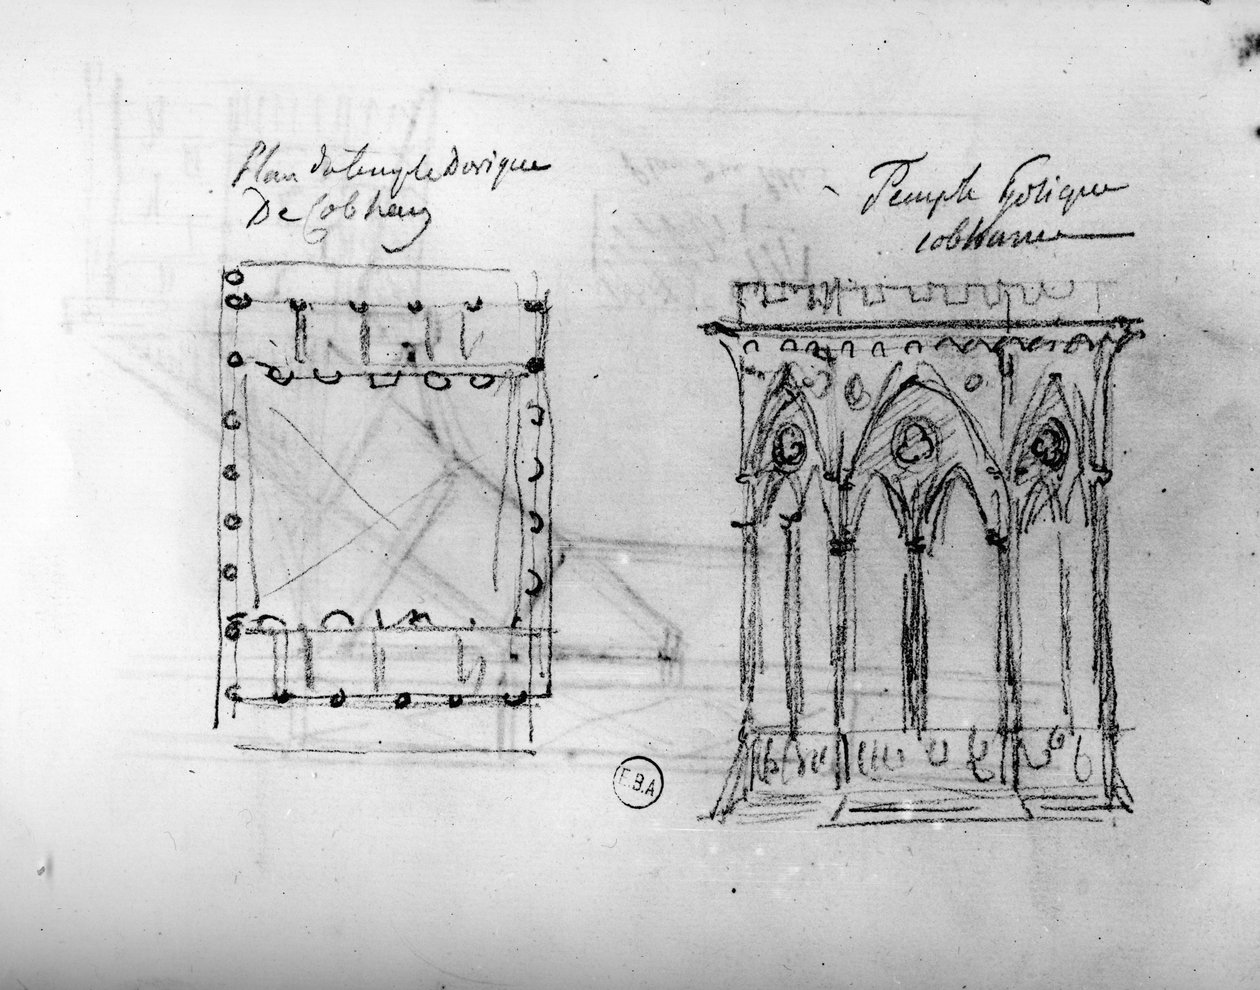 Plan du temple Dorique
De Cobham
Temple Gotique
cobham
E.B.A